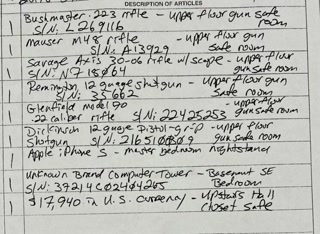 DESCRIPTION OF ARTICLES
1 Bushmaster .223 rifle - upper floor gun safe
S/N: L269116 room
1 mauser M48 rifle - upper floor gun
S/N: A13929 safe room
1 Savage Axis 30-06 rifle w/ scope - upper floor
S/N: gun safe room
1 Remington, 12 gauge shotgun - upper floor
S/N: gun safe room
1 Glenfield model 90 - upper floor
.22 caliber rifle S/N: 22425253 gun safe room
1 Dickinson 12 gauge Pistol-grip - upper floor
Shotgun S/N: gun safe room
1 Apple iPhone 5 - master bedroom nightstand
1 unknown Brand Computer Tower - Basement SE
S/N: 39214C02404265 Bedroom
1 $17,940 in U.S. Currency - Upstairs Hall
closet safe